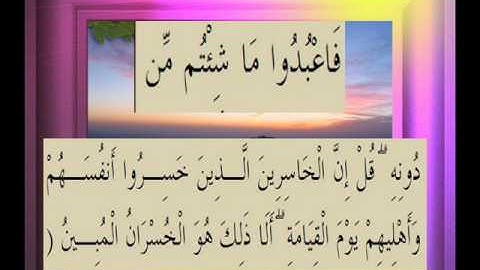 فَاعْبُدُوا مَا شِئْتُم مِّن
دُونِهِ ۗ قُلْ إِنَّ الْخَاسِرِينَ الَّذِينَ خَسِرُوا أَنفُسَهُمْ
وَأَهْلِيهِمْ يَوْمَ الْقِيَامَةِ ۗ أَلَا ذَٰلِكَ هُوَ الْخُسْرَانُ الْمُبِينُ (